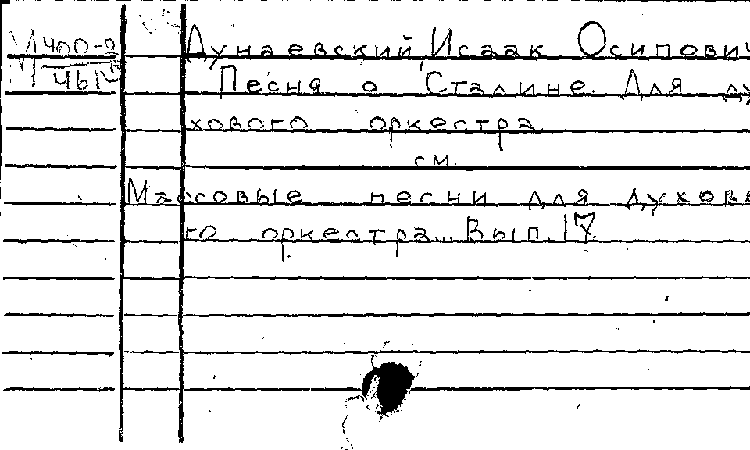 М 400-9
461
Дунаевский, Исаак Осипович
Песня о Сталине. Для ду-
хового оркестра
см.
Массовые песни для духово-
го оркестра. Вып. 17